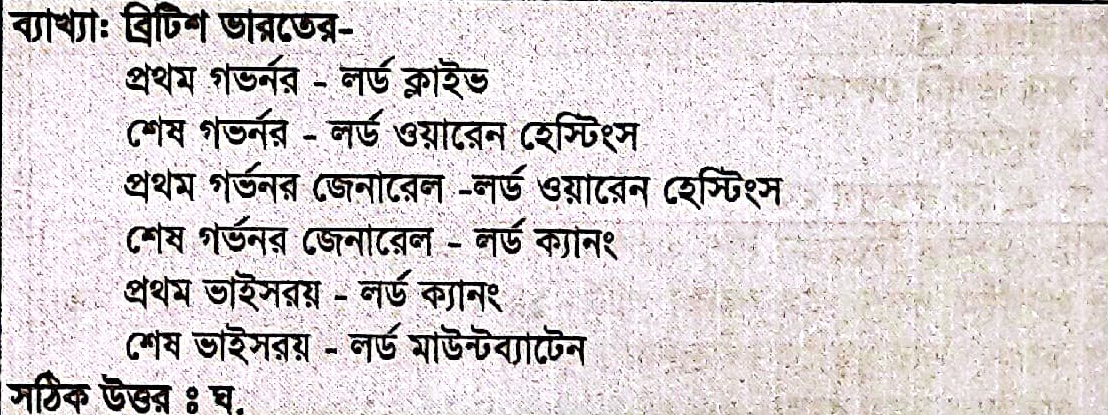 ব্যাখ্যাঃ ব্রিটিশ ভারতের-
প্রথম গভর্নর - লর্ড ক্লাইভ
শেষ গভর্নর - লর্ড ওয়ারেন হেস্টিংস
প্রথম গর্ভনর জেনারেল -লর্ড ওয়ারেন হেস্টিংস
শেষ গর্ভনর জেনারেল - লর্ড ক্যানিং
প্রথম ভাইসরয় - লর্ড ক্যানিং
শেষ ভাইসরয় - লর্ড মাউন্টব্যাটেন
সঠিক উত্তর ঃ ঘ.